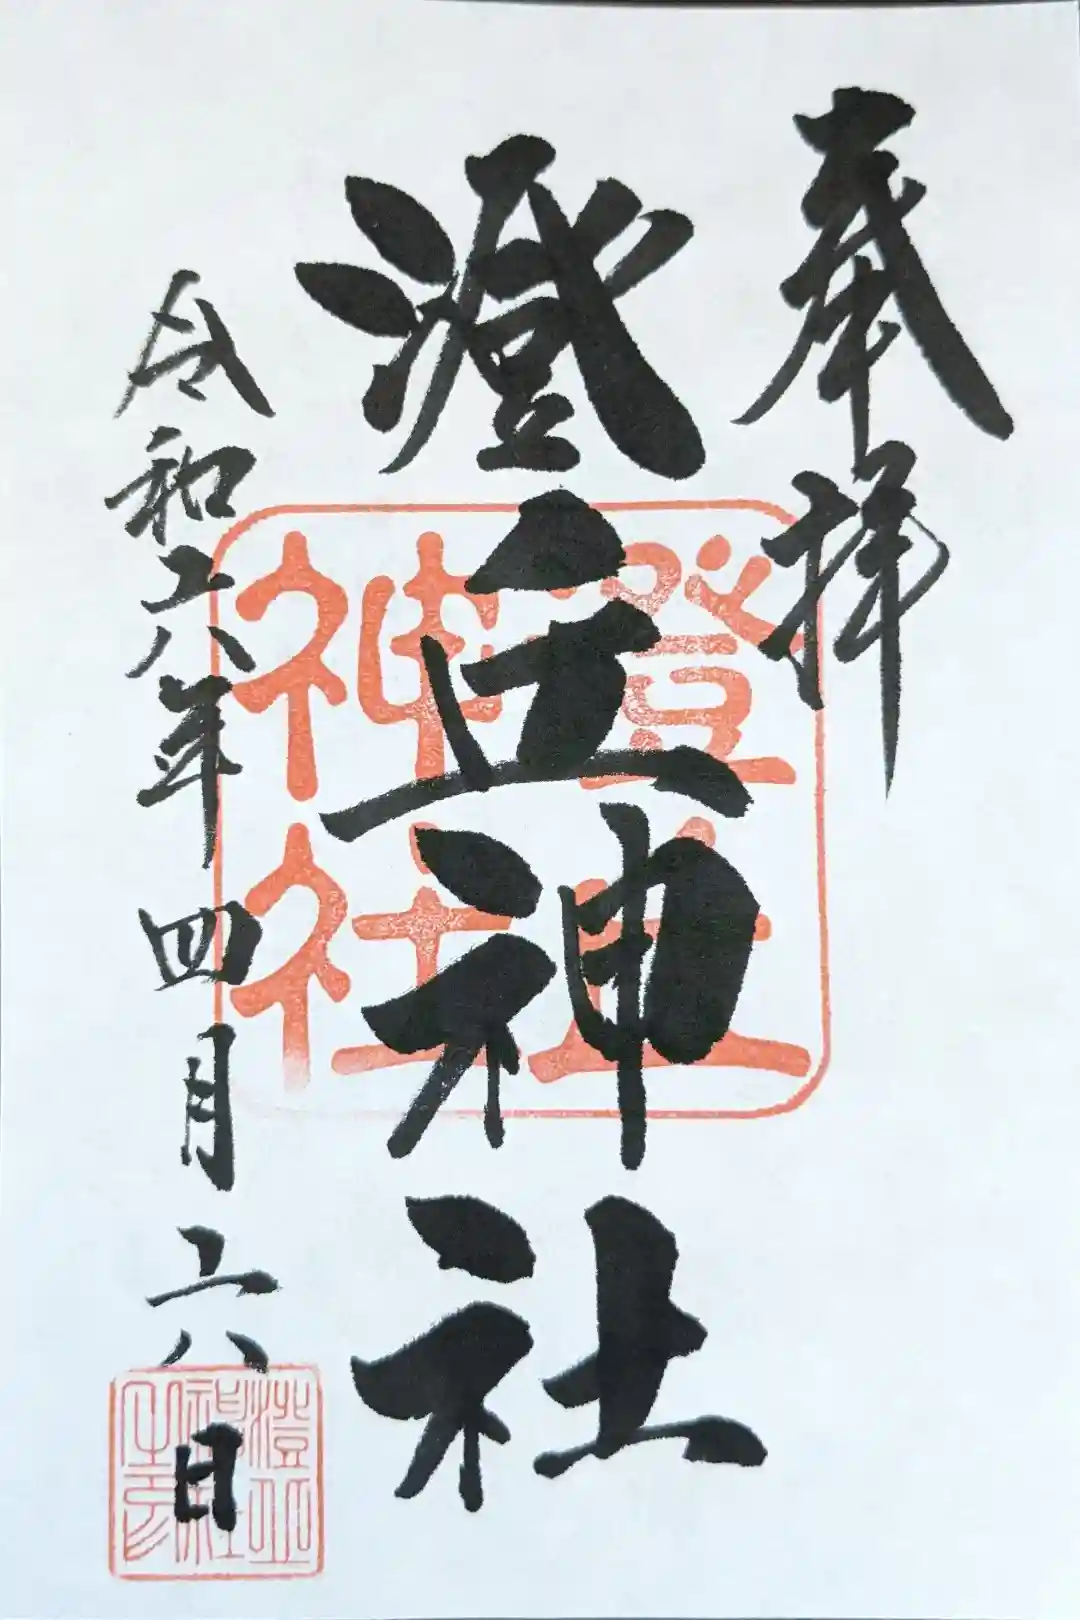 奉拝
澄丘神社
令和六年四月六日
澄丘
神社
澄丘
神社
之印